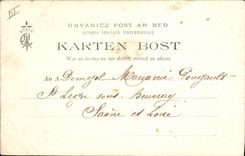 III
UNVANIEZ POST AR BED
(CARTE POSTALE UNIVERSELLE)
KARTEN BOST
War an tu-ma na vez skrivet nemed an adres
An A Demezel Maryanic Goupault
St Léger sous Beuvray
Saône et Loire